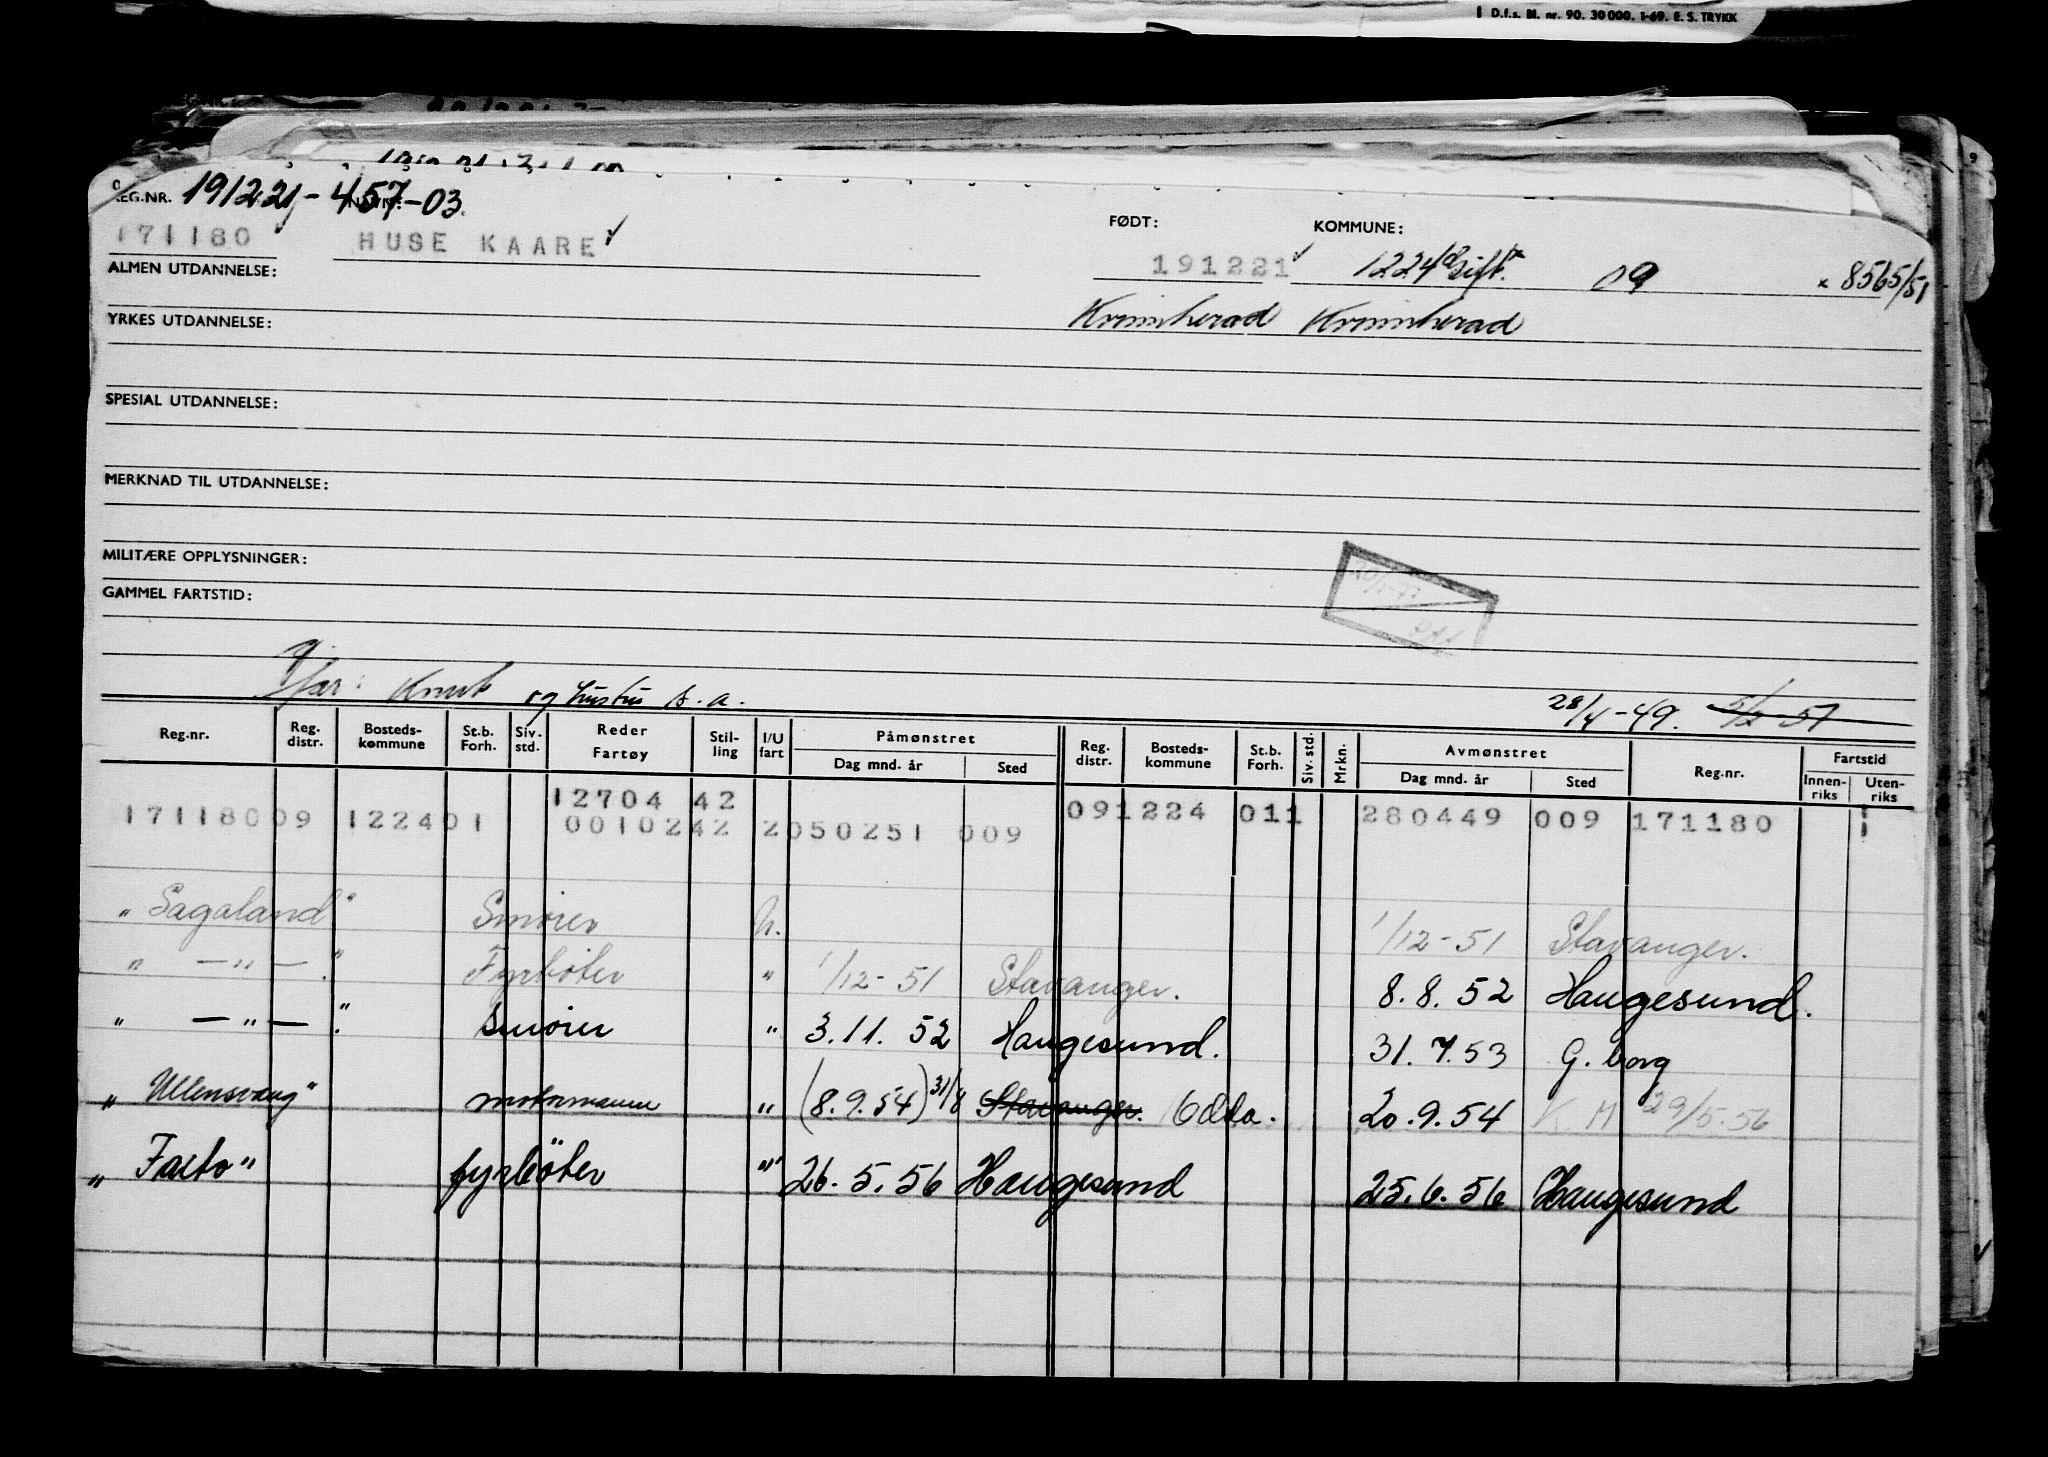 D.f.s. Bl. nr. 90. 30 000. 1-69. E. S. TRYKK
REG.NR. 191221-457-03.
NAVN: FØDT: KOMMUNE:
171180 HUSE KAARE 191221 1224 gift. 09 x 8565/51
ALMEN UTDANNELSE:
Kvinnherad Kvinnherad
YRKES UTDANNELSE:
SPESIAL UTDANNELSE:
MERKNAD TIL UTDANNELSE:
MILITÆRE OPPLYSNINGER:
GAMMEL FARTSTID:
Far: Knut og hustru s. a. 28/4-49. 5/2-51
Reg.nr. Reg. distr. Bosteds-kommune St.b. Forh. Siv. std. Reder Fartøy Stil-ling I/U fart Påmønstret Reg. distr. Bosteds-kommune St.b. Forh. Siv. std. Mrkn. Avmønstret Reg.nr. Fartstid
Dag mnd. år Sted Dag mnd. år Sted Innen-riks Uten-riks
12704 42
171180 09 1224 01 0010242 2 050251 009 091224 011 280449 009 171180
"Sagaland" Smører U. 1/12-51 Stavanger.
" — " — " Fyrbøter " 1/12-51 Stavanger. 8.8.52 Haugesund.
" — " — " Smører " 3.11.52 Haugesund. 31.7.53 G.borg
"Ullensvang" motormann " (8.9.54) 31/8 Stavanger. Odda. 20.9.54 K.M 29/5.56
"Faeto" fyrbøter " 26.5.56 Haugesund 25.6.56 Haugesund